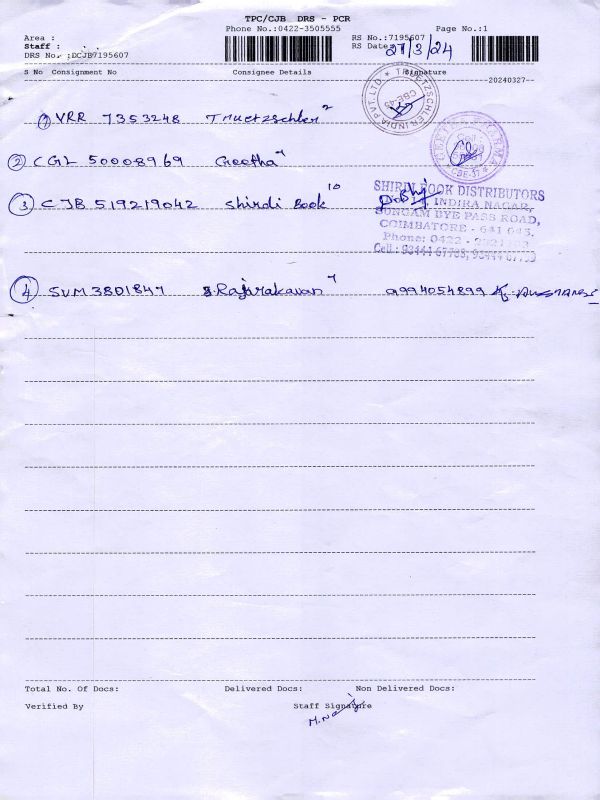 TPC/CJB DRS - PCR
Phone No.:0422-3505555 Page No.:1
Area : RS No.:7195607
Staff : RS Date: 27/3/24
DRS No. :DCJB7195607
S No Consignment No Consignee Details Signature
20240327
1 VRR 7353248 Truetzschler 2
TRUETZSCHLER INDIA PVT. LTD. * CBE-45
2 CGL 50008969 Geetha
CBE-37
3 CJB 519219042 Shirdi Book 10
SHIRDI BOOK DISTRIBUTORS
INDIRA NAGAR,
SUNGAM BYE PASS ROAD,
COIMBATORE - 641 045.
Phone: 0422 -
Cell : 93444 67788,
4 SVM 3801847 9994054899
Total No. Of Docs: Delivered Docs: Non Delivered Docs:
Verified By Staff Signature